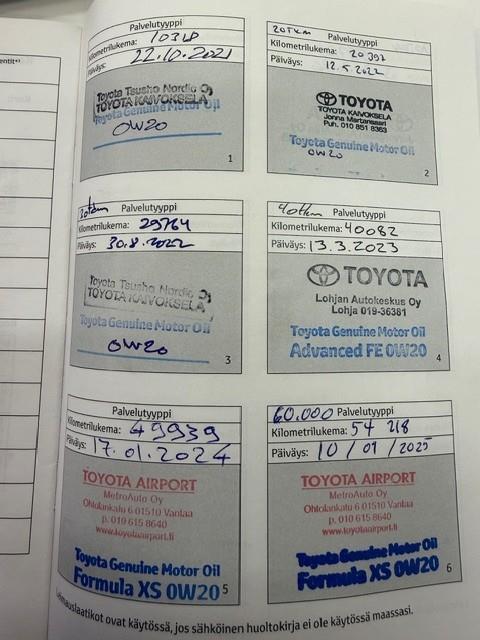 Palvelutyyppi
Kilometrilukema:
Päiväys: 22.10.2021
Toyota Tsusho Nordic Oy
TOYOTA KAIVOKSELA
Toyota Genuine Motor Oil
0W20
1
20Tkm Palvelutyyppi
Kilometrilukema: 20397
Päiväys: 12.5.2022
TOYOTA
TOYOTA KAIVOKSELA
Jonna Martansaari
Puh. 010 851 8363
Toyota Genuine Motor Oil
0W20
2
30tkm Palvelutyyppi
Kilometrilukema: 29764
Päiväys: 30.8.2022
Toyota Tsusho Nordic Oy
TOYOTA KAIVOKSELA
Toyota Genuine Motor Oil
0W20
3
40tkm Palvelutyyppi
Kilometrilukema: 40082
Päiväys: 13.3.2023
TOYOTA
Lohjan Autokeskus Oy
Lohja 019-36381
Toyota Genuine Motor Oil
Advanced FE 0W20
4
Palvelutyyppi
Kilometrilukema: 49939
Päiväys: 17.01.2024
TOYOTA AIRPORT
MetroAuto Oy
Ohtolankatu 6 01510 Vantaa
p. 010 615 8640
www.toyotaairport.fi
Toyota Genuine Motor Oil
Formula XS 0W20
5
60.000 Palvelutyyppi
Kilometrilukema: 54 218
Päiväys: 10/01/2025
TOYOTA AIRPORT
MetroAuto Oy
Ohtolankatu 6 01510 Vantaa
p. 010 615 8640
www.toyotaairport.fi
Toyota Genuine Motor Oil
Formula XS 0W20
6
ovat käytössä, jos sähköinen huoltokirja ei ole käytössä maassasi.